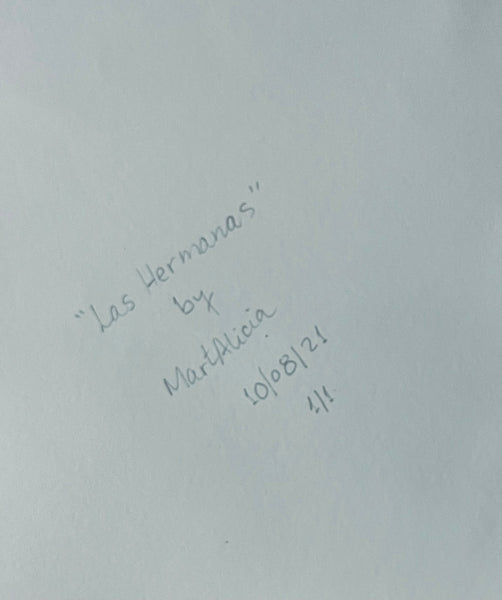 "Las Hermanas"
by
MartAlicia
10/08/21
1/1